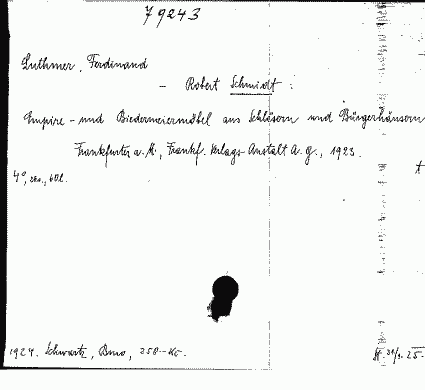 79243
Luthmer, Ferdinand
- Robert Schmidt :
Empire- und Biedermeiermöbel aus Schlössern und Bürgerhäusern
Frankfurter a. M., Frankf. Verlags-Anstalt A. G., 1923.
4°,
1924. Schwartz, Brno, 250 - Kč.